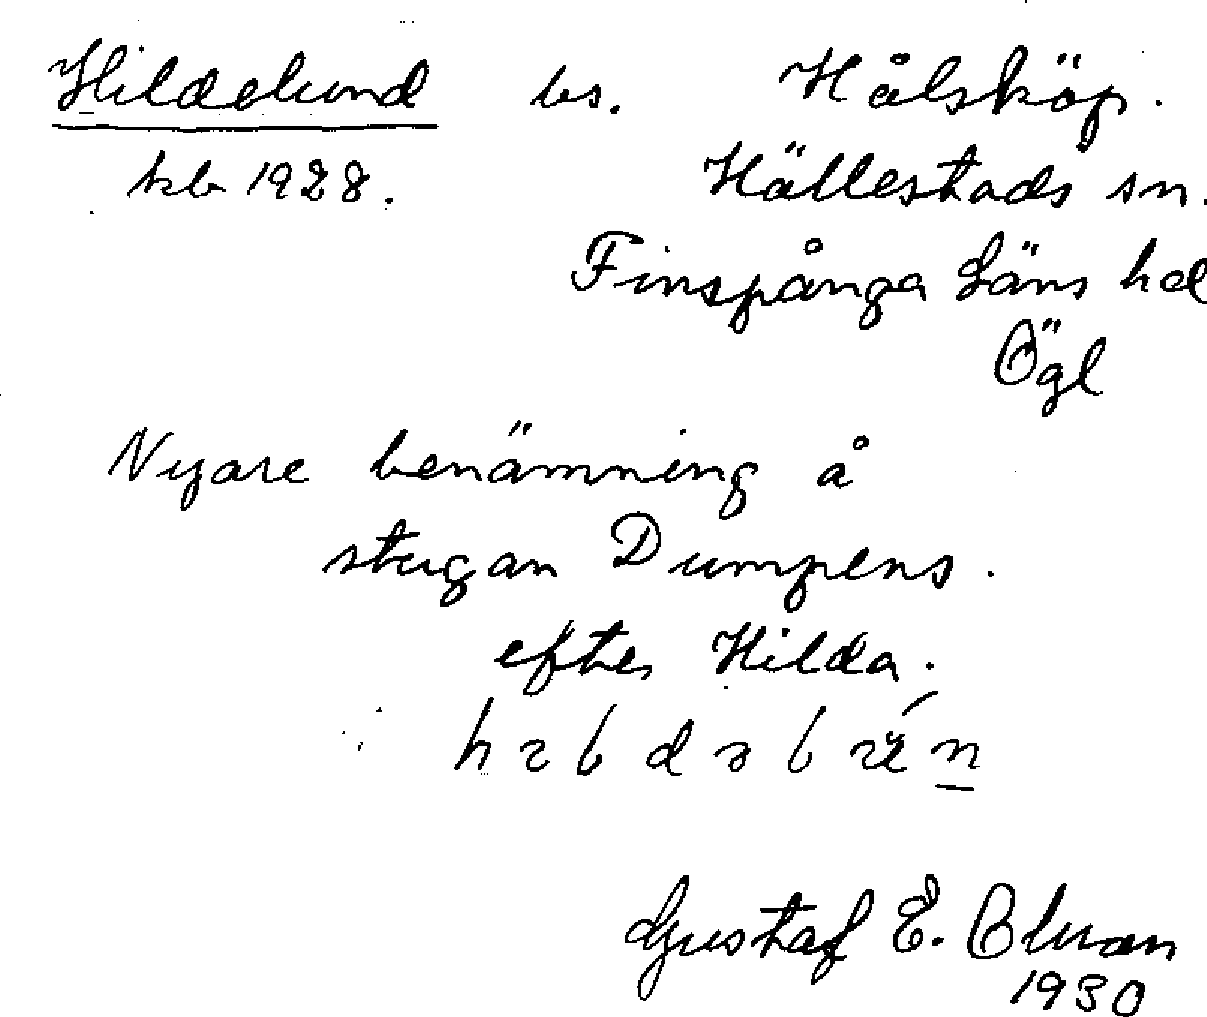 Hildelund bs. Hålsköp.
kb 1928. Hällestads sn.
Finspånga Läns hd
Ögl
Nyare benämning å
stugan Dumpens.
efter Hilda.
Gustaf E.
1930